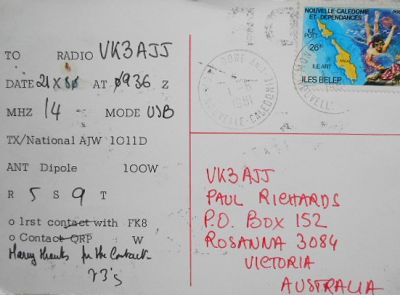 TO RADIO VK3AJJ
DATE 21 X 80 AT 0936 Z
MHZ 14 MODE USB
TX/National AJW 1011D
ANT Dipole 100W
R 5 S 9 T
o 1rst contact with FK8
o Contact QRP W
Many thanks for the Contact
73's
NOUVELLE CALEDONIE
ET DEPENDANCES
ILE
POTT
26F
ILE ART
ILES BELEP
1981
NOUVELLE-CALEDONIE
VK3AJJ
PAUL RICHARDS
P.O. BOX 152
ROSANNA 3084
VICTORIA
AUSTRALIA